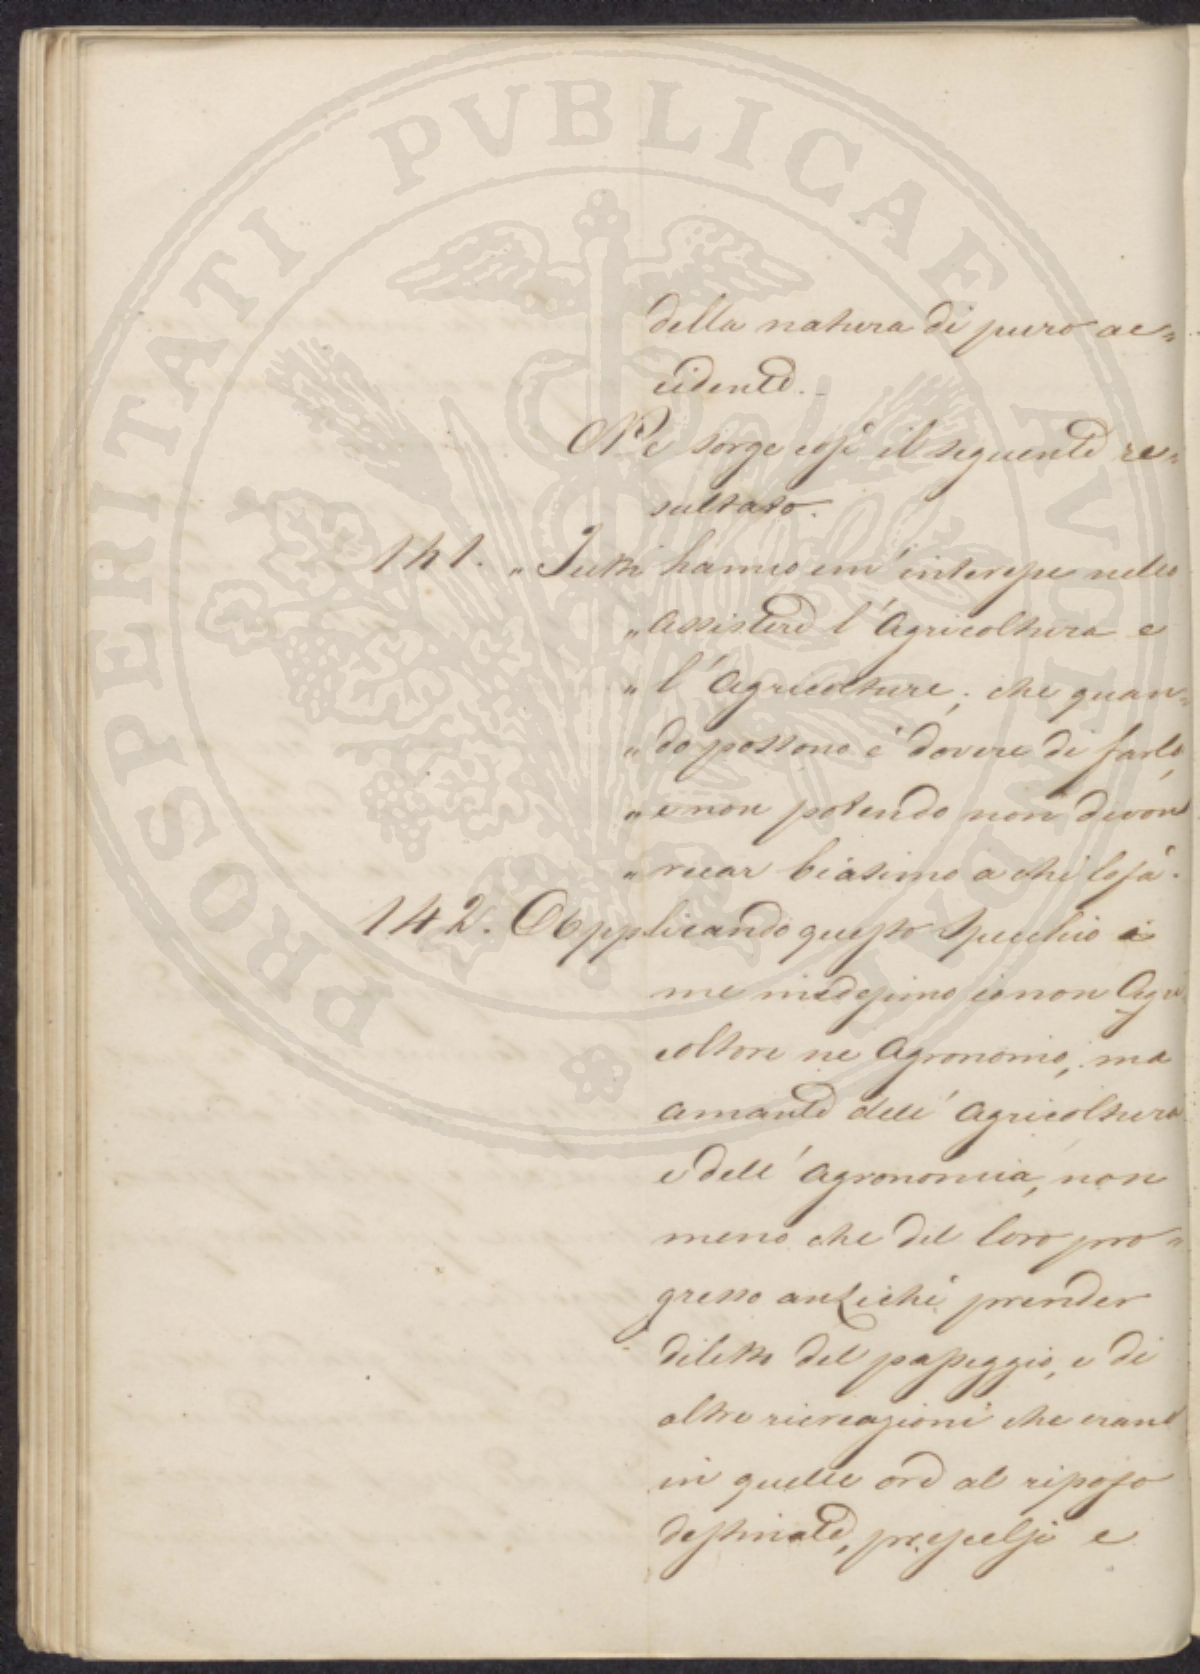 PROSPERITATI PVBLICAE AVGENDAE
della natura di puro ac=
cidente.
Ne sorge così il seguente re=
sultato.
141. „Tutti hanno un' interesse nello
„assistere l'Agricoltura e
„l'Agricoltore; che quan=
„do possono è dovere di farlo,
„e non potendo non devono
„recar biasimo a chi lo fà.
142. Applicando questo Specchio a
me medesimo io non Agri
coltore ne Agronomo, ma
amante dell'Agricoltura
e dell'Agronomia, non
meno che del loro pro=
gresso anzichè prender
diletto del passeggio, e di
altre ricreazioni che erano
in quelle ore al riposo
destinate, prescelsi e